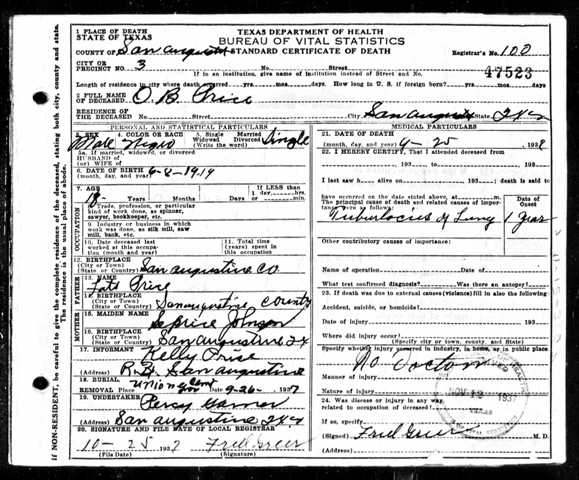 1 PLACE OF DEATH
STATE OF TEXAS
TEXAS DEPARTMENT OF HEALTH
BUREAU OF VITAL STATISTICS
COUNTY OF San Augustine STANDARD CERTIFICATE OF DEATH
Registrar's No. 100
CITY OR PRECINCT NO. 3 No. Street
If in an institution, give name of institution instead of Street and No.
47523
Length of residence in city where death occurred yrs. mos. days. How long in U. S. if foreign born? yrs. mos. days
2 FULL NAME OF DECEASED O. B. Price
RESIDENCE OF THE DECEASED No. Street City San Augustine State
PERSONAL AND STATISTICAL PARTICULARS
3. SEX 4. COLOR OR RACE 5. Single Married Widowed Divorced (Write the word)
Male Negro Single
5a. If married, widowed, or divorced
HUSBAND OF
(or) WIFE OF
6. DATE OF BIRTH (month, day, and year) 6-8-1919
7. AGE Years Months Days If LESS than 1 day, hrs. min.
18
OCCUPATION
8. Trade, profession, or particular kind of work done, as spinner, sawyer, bookkeeper, etc.
9. Industry or business in which work was done, as silk mill, saw mill, bank, etc.
10. Date deceased last worked at this occupation (month and year)
11. Total time (years) spent in this occupation
12. BIRTHPLACE (City or Town) (State or Country) San Augustine Co
FATHER
13. NAME Price
14. BIRTHPLACE (City or Town) (State or Country) San Augustine County
MOTHER
15. MAIDEN NAME Johnson
16. BIRTHPLACE (City or Town) (State or Country) San Augustine
17. INFORMANT Kelly Price
(Address) San Augustine
18. BURIAL Removal
Union Cem 9-26-1937
19. UNDERTAKER Percy Garner
(Address) San Augustine
20. SIGNATURE AND FILE DATE OF LOCAL REGISTRAR
10-25-1937 Fred Greer
(File Date) (Signature)
MEDICAL PARTICULARS
21. DATE OF DEATH (month, day, and year) 9-25 193
22. I HEREBY CERTIFY, That I attended deceased from
193 to 193
I last saw h alive on 193 ; death is said to
have occurred on the date stated above, at m.
The principal cause of death and related causes of importance were as follows:
Date of Onset
Tuburlocus of Lung 1 year
Other contributory causes of importance:
Name of operation Date of
What test confirmed diagnosis? Was there an autopsy?
23. If death was due to external causes (violence) fill in also the following:
Accident, suicide, or homicide?
Date of injury 193
Where did injury occur?
(Specify city or town, county, and state)
Specify whether injury occurred in industry, in home, or in public place
No Doctor
Manner of injury
Nature of injury
24. Was disease or injury in any way related to occupation of deceased?
If so, specify
(Signed) Fred Greer M. D.
(Address)
TEXAS